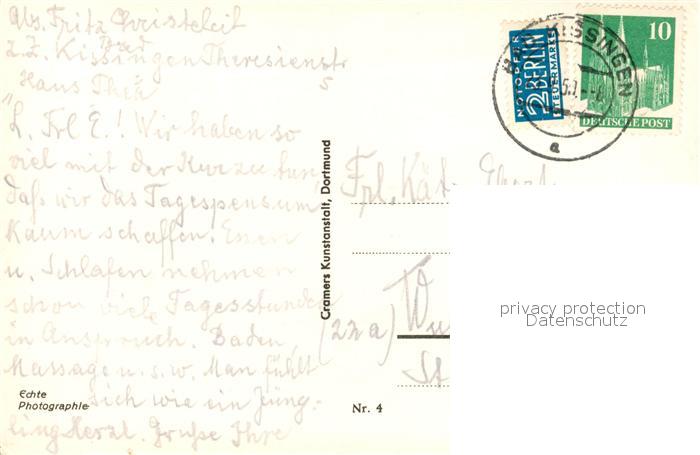 Abs. Fritz Christeleit
z. Z. Bad Kissingen Theresienstr
5
Haus Thea
L. Frl E.! Wir haben so
viel mit der Kur zu tun,
daß wir das Tagespensum
kaum schaffen. Essen
u. Schlafen nehmen
schon viele Tagesstunden
in Anspruch. Baden,
Massage u. s. w. Man fühlt
sich wie ein Jüng-
ling Herzl. Grüße Ihre
Echte
Photographie
Cramers Kunstanstalt, Dortmund
Nr. 4
NOTOPFER
2 BERLIN
STEUERMARKE
BAD KISSINGEN
a
10
DEUTSCHE POST
Frl. Kät
(22a) Wu
St
privacy protection
Datenschutz